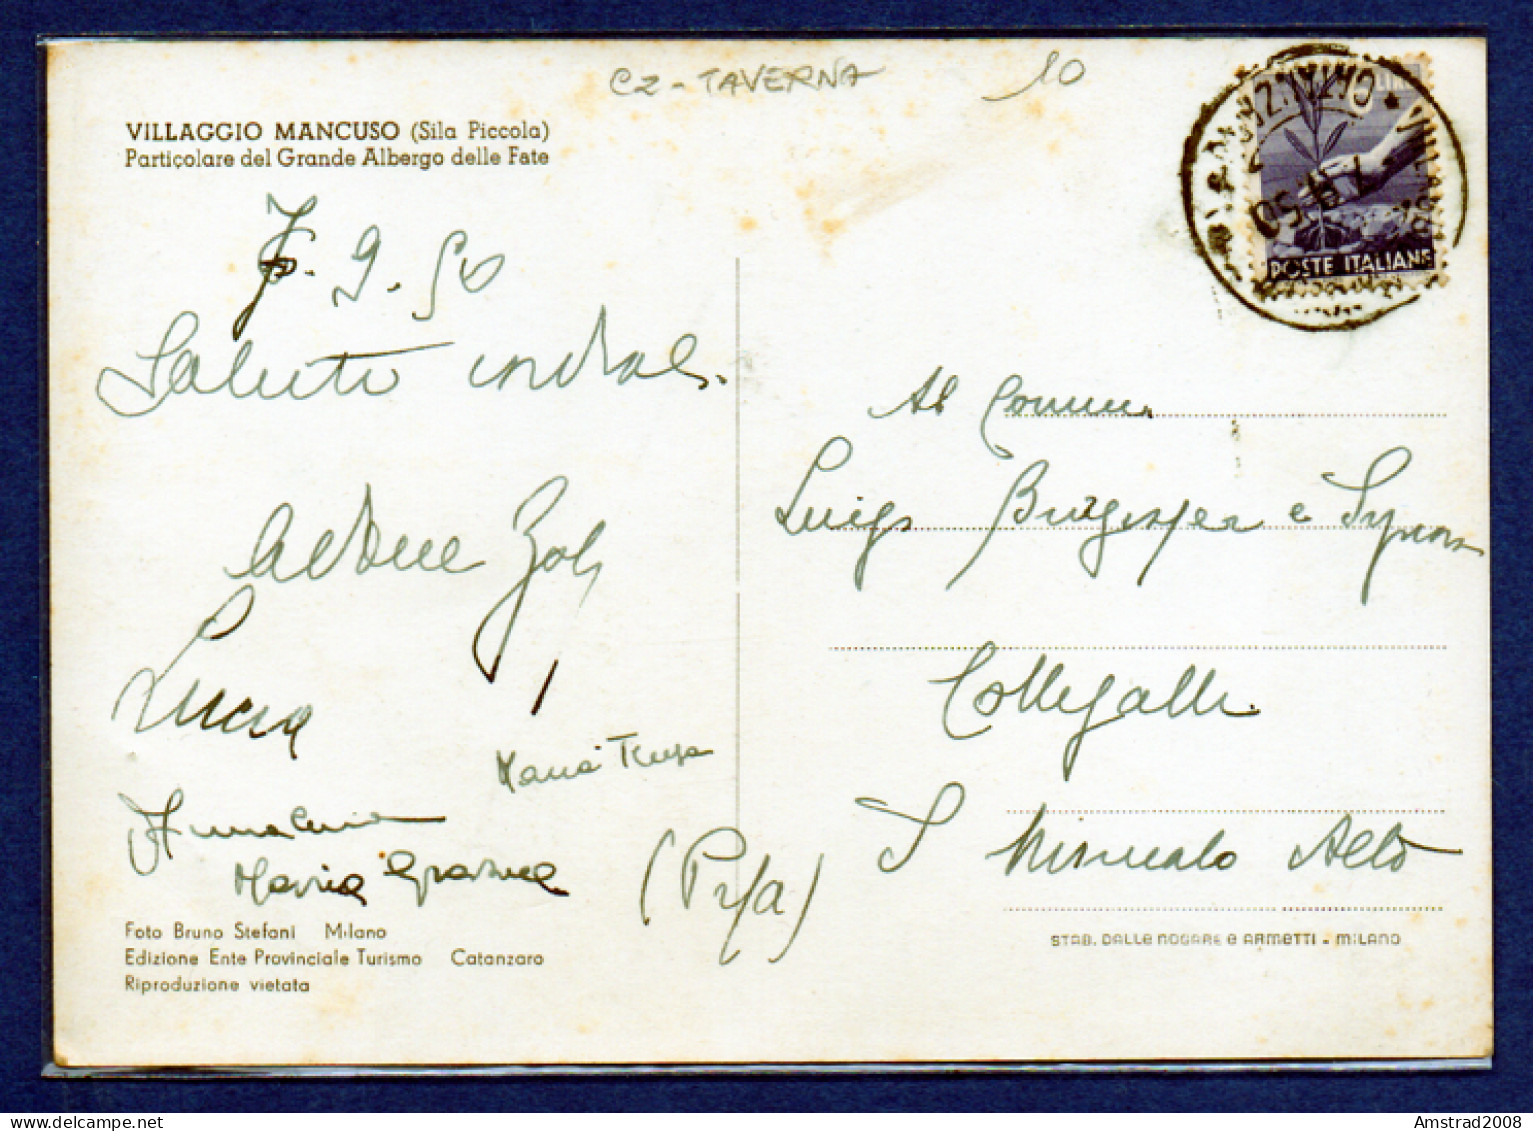 CZ - TAVERNA 10
VILLAGGIO MANCUSO (Sila Piccola)
Particolare del Grande Albergo delle Fate
7.9.50
Saluti cordiali.
Lucia
Maria Teresa
Annalena
Maria Grazia
Foto Bruno Stefani Milano
Edizione Ente Provinciale Turismo Catanzaro
Riproduzione vietata
POSTE ITALIANE
Al Comm.
Luigi e Signora
Collegalli
S Miniato Alto
(Pisa)
STAB. DALLE NOGARE e ARMETTI - MILANO
Amstrad2008